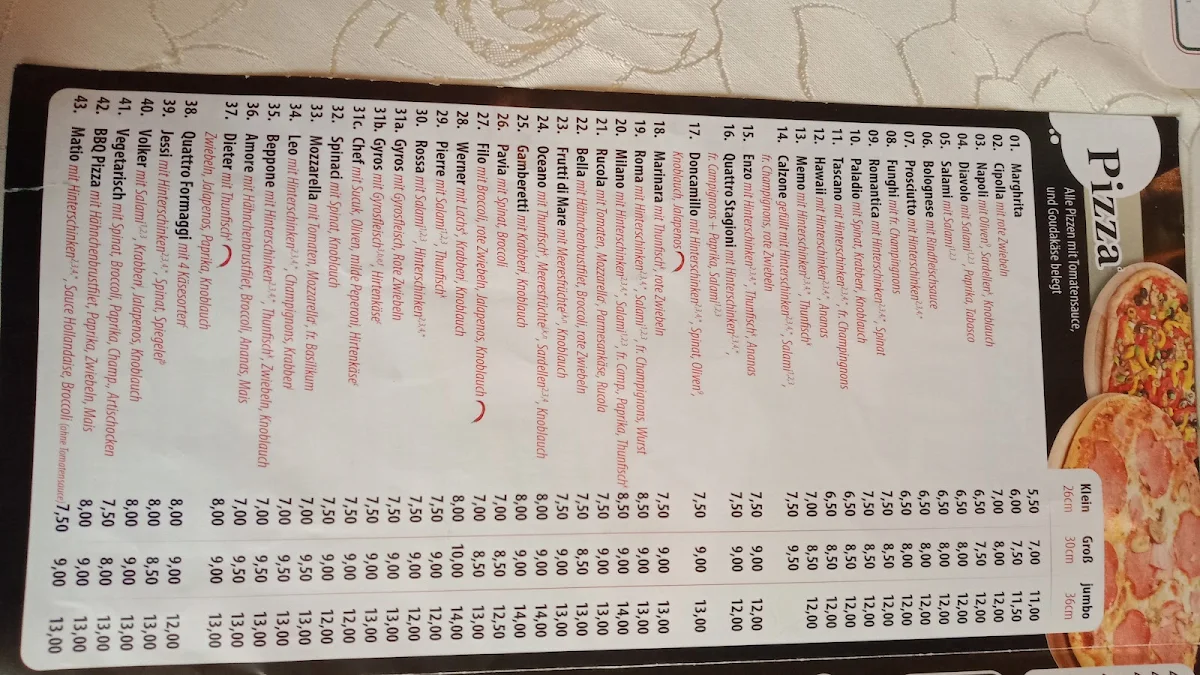 Pizza
Alle Pizzen mit Tomatensauce,
und Goudakäse belegt
Klein Groß jumbo
26cm 30cm 36cm
01. Marghrita 5,50 7,00 11,00
02. Cipolla mit rote Zwiebeln 6,00 7,50 11,50
03. Napoli mit Oliven⁶, Sardellen⁶, Knoblauch 7,00 8,00 12,00
04. Diavolo mit Salami¹,²,³, Paprika, Tabasco 6,50 7,50 12,00
05. Salami mit Salami¹,²,³ 6,50 8,00 12,00
06. Bolognese mit Rindfleischsauce 6,50 8,00 12,00
07. Prosciutto mit Hinterschinken²,³,⁴,* 6,50 8,00 12,00
08. Funghi mit fr. Champingnons 6,50 8,00 12,00
09. Romantica mit Hinterschinken²,³,⁴,*, Spinat 7,50 8,50 12,00
10. Paladio mit Spinat, Krabben, Knoblauch 7,50 8,50 12,00
11. Tascano mit Hinterschinken²,³,⁴,*, fr. Champingnons 6,50 8,50 12,00
12. Hawaii mit Hinterschinken²,³,⁴,*, Ananas 6,50 8,50 12,00
13. Memo mit Hinterschinken²,³,⁴,*, Thunfisch⁶ 7,00 8,50 12,00
14. Calzone gefüllt mit Hinterschinken²,³,⁴,*, Salami¹,²,³, 7,50 9,50
fr. Champignons, rote Zwiebeln
15. Enzo mit Hinterschinken²,³,⁴,*, Thunfisch⁶, Ananas 7,50 9,00 12,00
16. Quattro Stagioni mit Hinterschinken²,³,⁴,*, 7,50 9,00 12,00
fr. Campignons + Paprika, Salami¹,²,³
17. Doncamillo mit Hinterschinken²,³,⁴,*, Spinat, Oliven⁶, 7,50 9,00 13,00
Knoblauch, Jalapenos
18. Marinara mit Thunfisch⁶, rote Zwiebeln 7,50 9,00 13,00
19. Roma mit Hinterschinken²,³,⁴,*, Salami¹,²,³, fr. Champignons, Wurst 8,50 9,00 13,00
20. Milano mit Hinterschinken²,³,⁴,*, Salami¹,²,³, fr. Camp., Paprika, Thunfisch⁶ 8,50 9,00 14,00
21. Rucola mit Tomaten, Mozzarella, Parmesankäse, Rucola 7,50 9,00 13,00
22. Bella mit Hähnchenbrustfilet, Broccoli, rote Zwiebeln 7,50 8,50 13,00
23. Frutti di Mare mit Meeresfrüchte⁶,⁹, Knoblauch 7,50 9,00 13,00
24. Oceano mit Thunfisch⁶, Meeresfrüchte⁶,⁹, Sardellen²,³,⁴, Knoblauch 8,00 9,00 14,00
25. Gamberetti mit Krabben, Knoblauch 8,00 9,00 14,00
26. Pavia mit Spinat, Broccoli 7,00 8,50 12,50
27. Filo mit Broccoli, rote Zwiebeln, Jalapenos, Knoblauch 7,00 8,50 13,00
28. Werner mit Lachs⁶, Krabben, Knoblauch 8,00 10,00 14,00
29. Pierre mit Salami¹,²,³, Thunfisch⁶ 7,50 9,00 12,00
30. Rossa mit Salami¹,²,³, Hinterschinken²,³,⁴,* 7,50 9,00 12,00
31a. Gyros mit Gyrosfleisch, Rote Zwiebeln 7,50 9,00 13,00
31b. Gyros mit Gyrosfleisch³,⁶,⁹, Hirtenkäse⁶ 7,50 9,00 13,00
31c. Chef mit Sucuk, Oliven, milde Peperoni, Hirtenkäse⁶ 7,50 9,00 12,00
32. Spinaci mit Spinat, Knoblauch 7,50 9,00 12,00
33. Mozzarella mit Tomaten, Mozzarella⁶, fr. Basillikum 7,00 9,00 13,00
34. Leo mit Hinterschinken²,³,⁴,*, Champignons, Krabben⁶ 7,00 9,50 13,00
35. Beppone mit Hinterschinken²,³,⁴,*, Thunfisch⁶, Zwiebeln, Knoblauch 7,00 9,50 13,00
36. Amore mit Hähnchenbrustfilet, Broccoli, Ananas, Mais 7,00 9,50 13,00
37. Dieter mit Thunfisch 8,00 9,00 13,00
Zwiebeln, Jalapenos, Paprika, Knoblauch
38. Quattro Formaggi mit 4 Käsesorten⁶ 8,00 9,00 12,00
39. Jessi mit Hinterschinken²,³,⁴,*, Spinat, Spiegelei⁹ 8,00 8,50 13,00
40. Volker mit Salami¹,²,³, Krabben, Jalapenos, Knoblauch 8,00 9,00 13,00
41. Vegetarisch mit Spinat, Broccoli, Paprika, Champ., Artischocken 7,50 8,00 13,00
42. BBQ Pizza mit Hähnchenbrustfilet, Paprika, Zwiebeln, Mais 8,00 9,00 13,00
43. Matio mit Hinterschinken²,³,⁴,*, Sauce Hollandaise, Broccoli (ohne Tomatensauce) 7,50 9,00 13,00